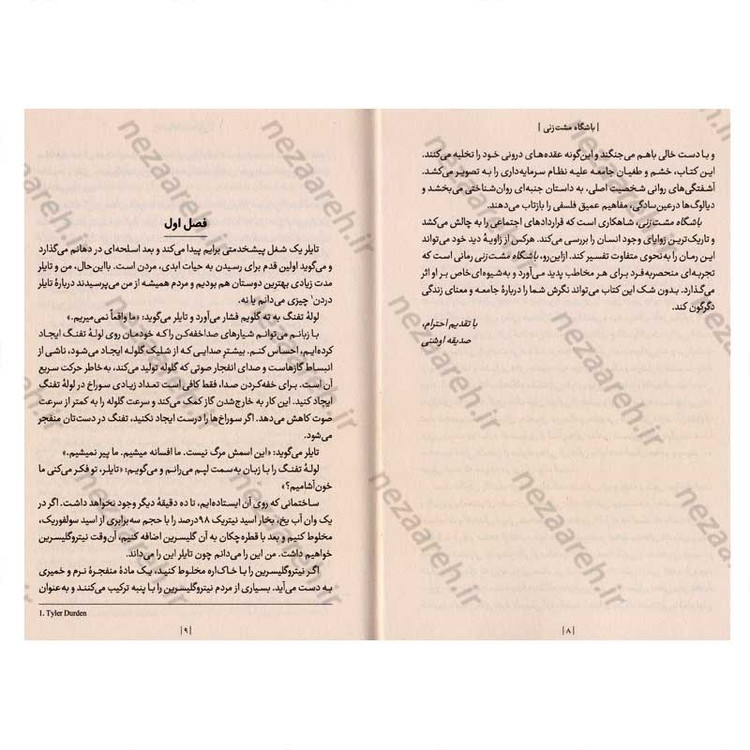 | باشگاه مشت‌زنی |
و با دست خالی باهم می‌جنگند و این‌گونه عقده‌های درونی خود را تخلیه می‌کنند.
این کتاب، خشم و طغیان جامعه علیه نظام سرمایه‌داری را به تصویر می‌کشد.
آشفتگی‌های روانی شخصیت اصلی، به داستان جنبه‌ای روان‌شناختی می‌بخشد و
دیالوگ‌ها درعین‌سادگی، مفاهیم عمیق فلسفی را بازتاب می‌دهند.
باشگاه مشت‌زنی، شاهکاری است که قراردادهای اجتماعی را به چالش می‌کشد
و تاریک‌ترین زوایای وجود انسان را بررسی می‌کند. هرکس از زاویهٔ دید خود می‌تواند
این رمان را به‌نحوی متفاوت تفسیر کند. ازاین‌رو، باشگاه مشت‌زنی رمانی است که
تجربه‌ای منحصربه‌فرد برای هر مخاطب پدید می‌آورد و به‌شیوه‌ای خاص بر او اثر
می‌گذارد. بدون شک این کتاب می‌تواند نگرش شما را دربارهٔ جامعه و معنای زندگی
دگرگون کند.
با تقدیم احترام،
صدیقه اوشنی
| ۸ |
فصل اول
تایلر یک شغل پیشخدمتی برایم پیدا می‌کند و بعد اسلحه‌ای در دهانم می‌گذارد
و می‌گوید اولین قدم برای رسیدن به حیات ابدی، مردن است. بااین‌حال، من و تایلر
مدت زیادی بهترین دوستان هم بودیم و مردم همیشه از من می‌پرسیدند دربارهٔ تایلر
دردن۱ چیزی می‌دانم یا نه.
لولهٔ تفنگ به ته گلویم فشار می‌آورد و تایلر می‌گوید: «ما واقعاً نمی‌میریم.»
با زبانم می‌توانم شیارهای صداخفه‌کن را که خودمان روی لولهٔ تفنگ ایجاد
کرده‌ایم، احساس کنم. بیشترِ صدایی که از شلیک گلوله ایجاد می‌شود، ناشی از
انبساط گازهاست و صدای انفجار صوتی که گلوله تولید می‌کند، به‌خاطر حرکت سریع
آن است. برای خفه‌کردن صدا، فقط کافی است تعداد زیادی سوراخ در لولهٔ تفنگ
ایجاد کنید. این کار به خارج‌شدن گاز کمک می‌کند و سرعت گلوله را به کمتر از سرعت
صوت کاهش می‌دهد. اگر سوراخ‌ها را درست ایجاد نکنید، تفنگ در دست‌تان منفجر
می‌شود.
تایلر می‌گوید: «این اسمش مرگ نیست. ما افسانه میشیم. ما پیر نمیشیم.»
لولهٔ تفنگ را با زبان به‌سمت لپم می‌رانم و می‌گویم: «تایلر، تو فکر می‌کنی ما
خون‌آشامیم؟»
ساختمانی که روی آن ایستاده‌ایم، تا ده دقیقهٔ دیگر وجود نخواهد داشت. اگر در
یک وان آب یخ، بخار اسید نیتریک ۹۸درصد را با حجم سه‌برابری از اسید سولفوریک،
مخلوط کنیم و بعد با قطره‌چکان به آن گلیسرین اضافه کنیم، آن‌وقت نیتروگلیسرین
خواهیم داشت. من این را می‌دانم چون تایلر این را می‌داند.
اگر نیتروگلیسرین را با خاک‌اره مخلوط کنید، یک مادهٔ منفجرهٔ نرم و خمیری
به دست می‌آید. بسیاری از مردم نیتروگلیسرین را با پنبه ترکیب می‌کنند و به‌عنوان
1. Tyler Durden
| ۹ |
nezaareh.ir